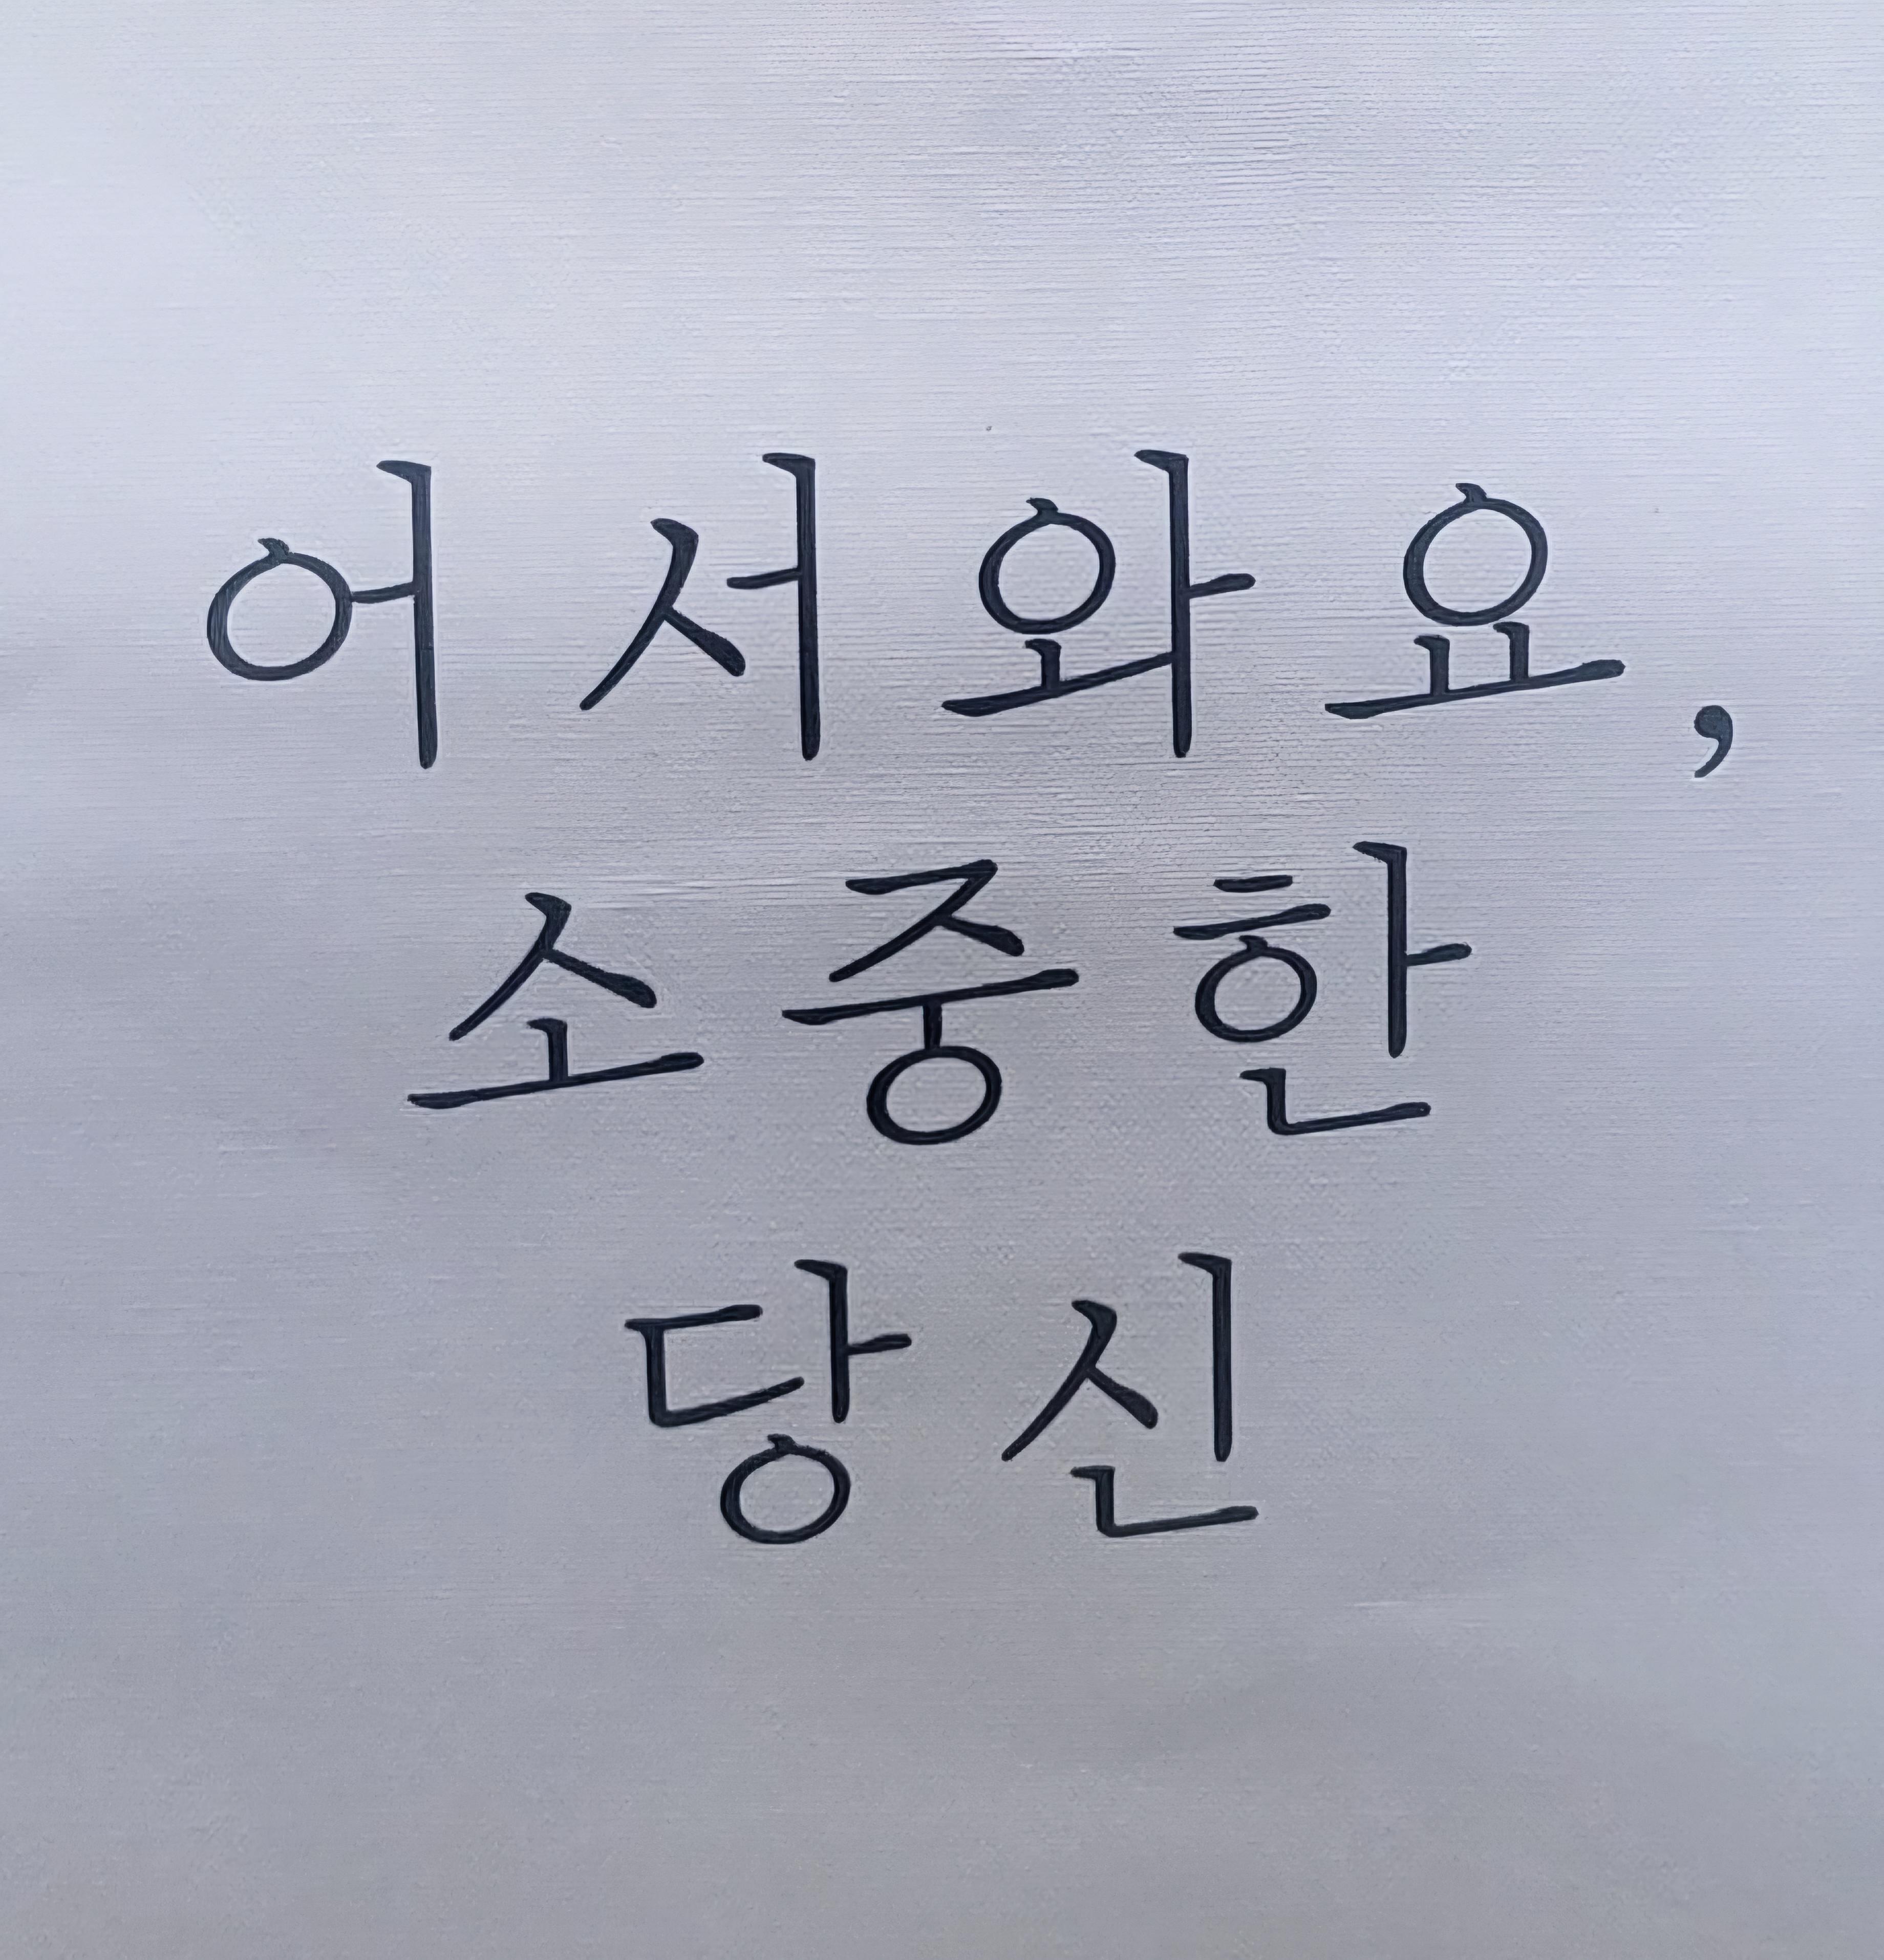 어서와요,
소중한
당신